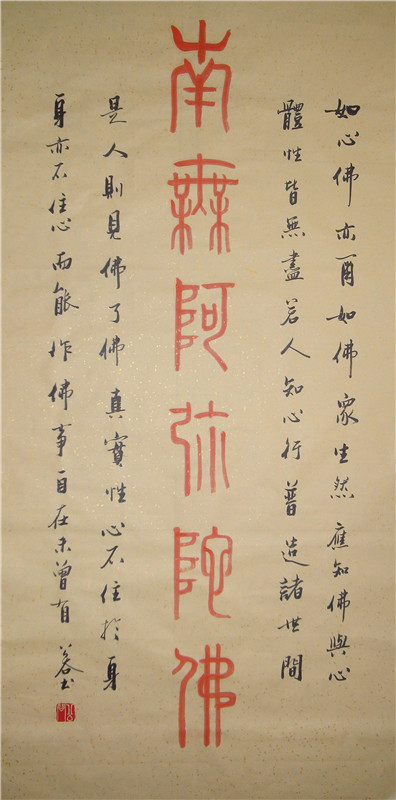 如心佛亦爾如佛眾生然應知佛與心
體性皆無盡若人知心行普造諸世間
南無阿弥陀佛
是人則見佛了佛真實性心不住於身
身亦不住心而能作佛事自在未曾有